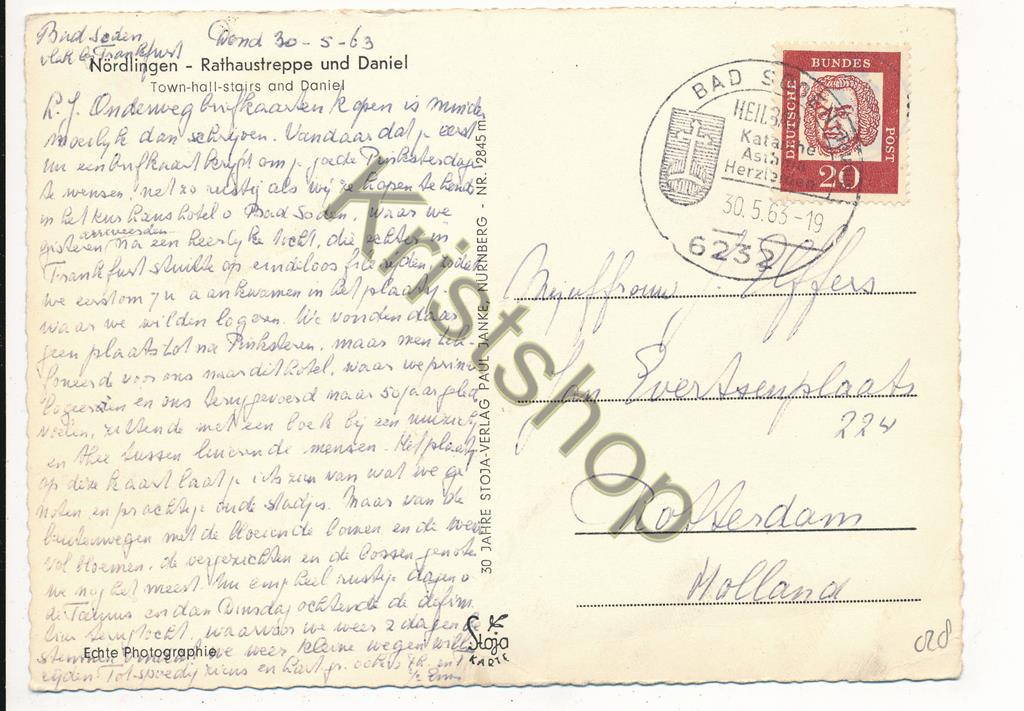 Bad Soden Dond 30-5-63
vlak b. Frankfurt
Nördlingen - Rathaustreppe und Daniel
Town-hall-stairs and Daniel
L. J. Onderweg briefkaarten kopen is minder
moeilijk dan schrijven. Vandaar dat je eerst
nu een briefkaart krijgt om je goede Pinksterdagen
te wensen, net zo rustig als wij ze hopen te hebben
in het kurhaushotel Bad Soden, waar we
gisteren arriveerden na een heerlijke tocht, die echter in
Frankfurt stuitte op eindeloos file rijden, zodat
we eerst om 7 u aankwamen in het plaatsje
waar we wilden logeren. We vonden daar
geen plaats tot na Pinksteren, maar men tele-
foneerde voor ons naar dit hotel, waar we prima
logeerden en ons teruggevoerd naar 50 jaar geleden
voelen, zittende met een boek bij een muziekje
en thee tussen kurende mensen. Het plaatje
op deze kaart laat je iets zien van wat we ge-
noten en prachtige oude stadjes. Maar van de
buitenwegen met de bloeiende bomen en de weiden
vol bloemen, de vergezichten en de bossen genoten
we nog het meest. Nu enkele rustige dagen
de Taunus en dan Dinsdag ochtend de defini-
tieve terugtocht, waarvoor we weer 2 dagen be-
stemmen omdat we weer kleine wegen willen
rijden. Tot spoedig ziens en hart. gr. ook
Echte Photographie
30 JAHRE STOJA-VERLAG PAUL JANKE, NÜRNBERG - NR. 2845 m
Stoja
KARTE
BAD SODEN
HEILBAD
Katarrhe
Asthma
Herzleiden
30.5.63-19
6232
DEUTSCHE BUNDES POST
20
Mejuffrouw J. Effers
Jan Evertsenplaats
224
Rotterdam
Holland
Kristshop